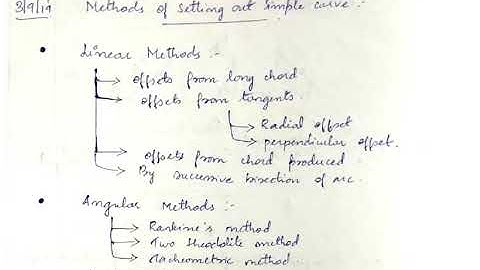 3/9/19 Methods of setting out simple curve :-
• Linear Methods :-
→ offsets from long chord
→ offsets from tangents.
→ Radial offset
→ perpendicular offset.
→ offsets from chord produced
→ By successive bisection of arc.
• Angular Methods :-
→ Rankine's method
→ Two theodolite method
→ Tacheometric method.